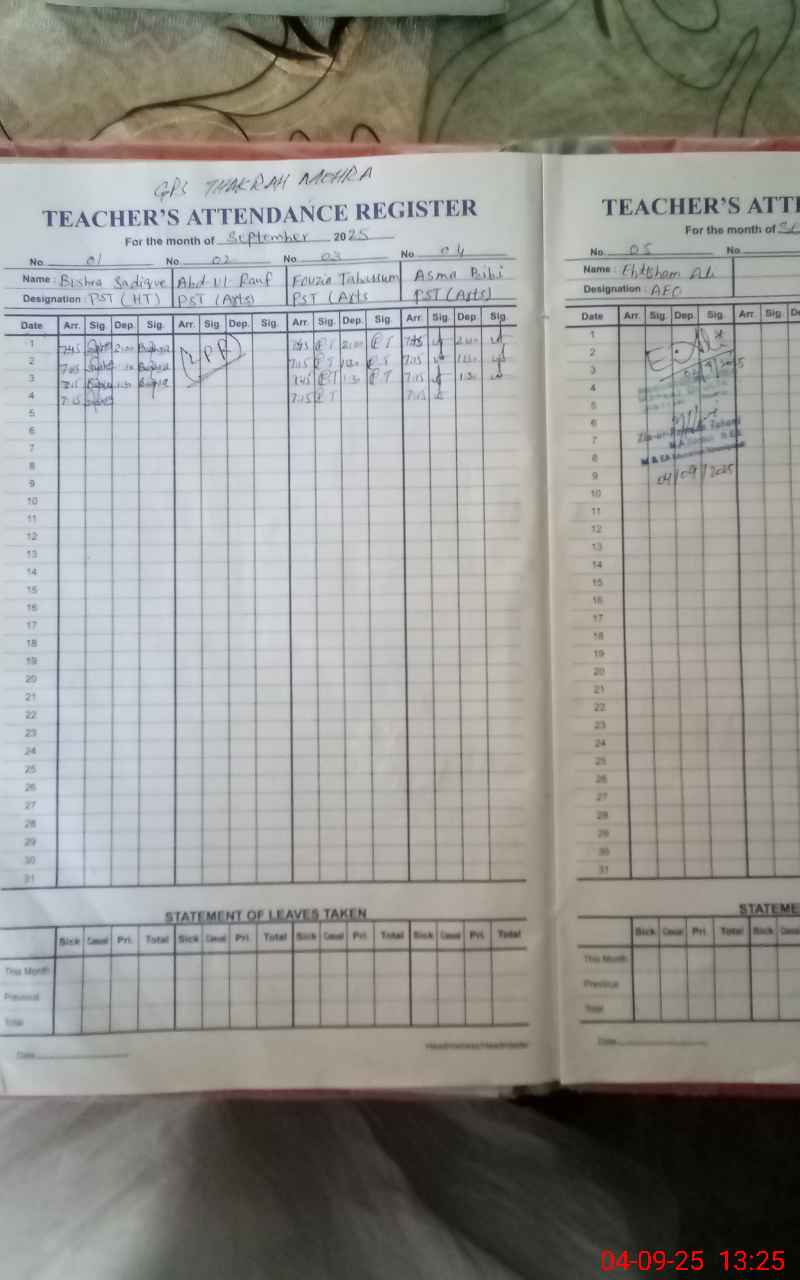 GPS THAKRAH MOHRA
TEACHER'S ATTENDANCE REGISTER
For the month of September 2025
No. 01 No. 02 No. 03 No. 04
Name : Bushra Sadique Abd Ul Rauf Fouzia Tabassum Asma Bibi
Designation : PST (HT) PST (Arts) PST (Arts PST (Arts)
Date Arr. Sig. Dep. Sig. Arr. Sig. Dep. Sig. Arr. Sig. Dep. Sig. Arr. Sig. Dep. Sig.
1 7:45 2:00 Bushra 7:45 F T 2:00 F T 7:45 2:00
2 7:15 Bushra 7:15 F T 1:30 F T 7:15 1:30
3 7:15 1:30 Bushra 7:45 F T 1:30 F T 7:15 1:30
4 7:15 7:15 F T 7:15
5
6
7
8
9
10
11
12
13
14
15
16
17
18
19
20
21
22
23
24
25
26
27
28
29
30
31
STATEMENT OF LEAVES TAKEN
Sick Casual Pri. Total Sick Casual Pri. Total Sick Casual Pri. Total Sick Casual Pri. Total
This Month
Previous
Total
Date
TEACHER'S ATTE
For the month of Se
No. 05 No.
Name : Ehtsham Ali
Designation : AEO
Date Arr. Sig. Dep. Sig. Arr. Sig. De
1
2
3
4
5
6
7
8
9
04/09/2025
10
11
12
13
14
15
16
17
18
19
20
21
22
23
24
25
26
27
28
29
30
31
STATEME
Sick Casual Pri. Total Sick Casual
This Month
Previous
Total
Date
04-09-25 13:25